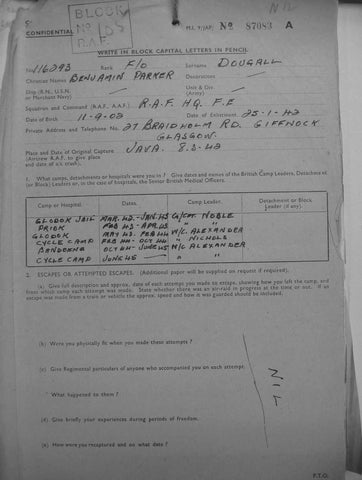 BLOCK
No 155
R.A.F.
N12
CONFIDENTIAL
M.I. 9/JAP/ No 87083 A
WRITE IN BLOCK CAPITAL LETTERS IN PENCIL
No. 116293 Rank F/O Surname DOUGALL
Christian Names BENJAMIN PARKER Decorations
Ship (R.N., U.S.N. or Merchant Navy) Unit & Div. (Army)
Squadron and Command (R.A.F., A.A.F.) R.A.F. HQ. F.E
Date of Birth 11-9-02 Date of Enlistment 25-1-42
Private Address and Telephone No. 27 BRAIDHOLM RD. GIFFNOCK
GLASGOW.
Place and Date of Original Capture JAVA. 8.3.42
(Aircrew R.A.F. to give place
and date of a/c crash).
1. What camps, detachments or hospitals were you in? Give dates and names of the British Camp Leaders, Detachment
(or Block) Leaders or, in the case of hospitals, the Senior British Medical Officers.
Camp or Hospital. Dates. Camp Leader. Detachment or Block Leader (if any).
GLODOK JAIL MAR. 42.-JAN. 43 G/CPT. NOBLE
PRIOK FEB 43-APR. 43 " "
GLODOK MAY 43. FEB 44 W/C. ALEXANDER
CYCLE CAMP FEB 44-OCT 44 " NICHOLS
BANDOENG OCT 44-JUNE 45 W/C ALEXANDER
CYCLE CAMP JUNE 45
2. ESCAPES OR ATTEMPTED ESCAPES. (Additional paper will be supplied on request if required).
(a) Give full description and approx. date of each attempt you made to escape, showing how you left the camp, and
from which camp each attempt was made. State whether there was an air-raid in progress at the time or out. If an
escape was made from a train or vehicle the approx. speed and how it was guarded should be included.
(b) Were you physically fit when you made these attempts?
(c) Give Regimental particulars of anyone who accompanied you on each attempt.
What happened to them?
NIL
(d) Give briefly your experiences during periods of freedom.
(e) How were you recaptured and on what date?
P.T.O.